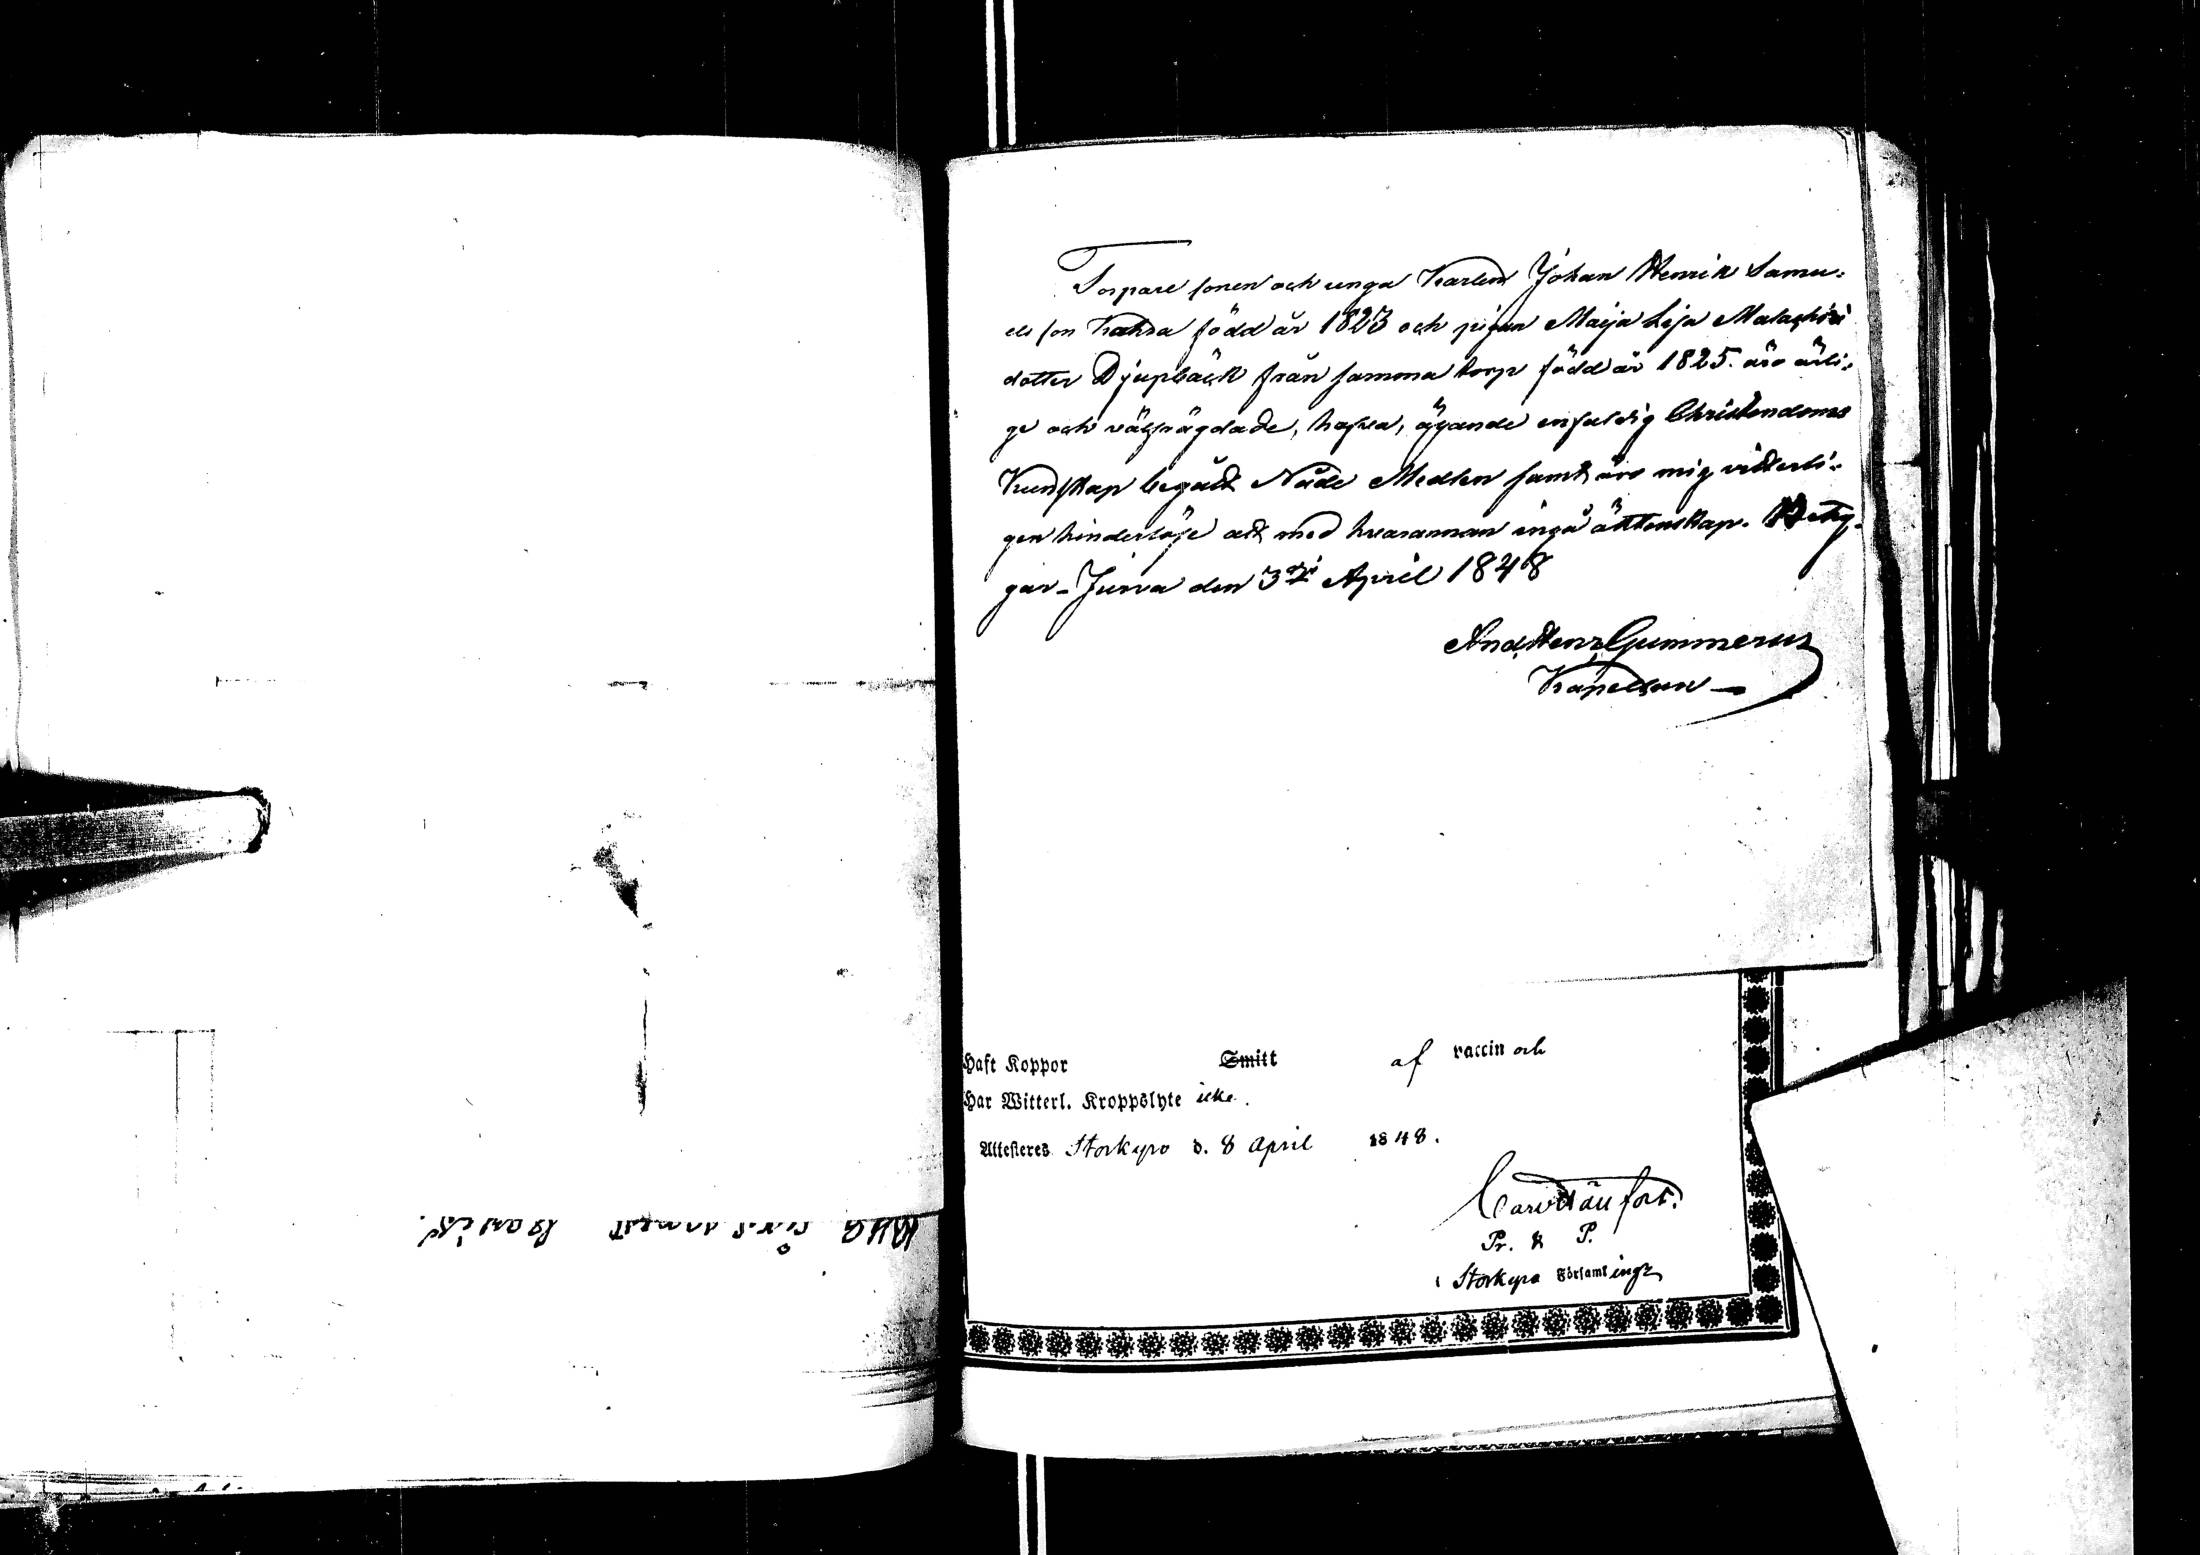 Torpare sonen och unga Karlen Johan Henrik Samu-
els son Kahra född år 1823 och pigan Maija Lisa Malachiæ
dotter Djupbäck från samma torp född år 1825. äro ärli-
ge och välfrägdade, hafva, ägande enfaldig Christendoms
Kundskap begådt Nåde Medlen samt äro mig vitterli-
gen hinderlöse att med hvarannan ingå äktenskap. Betyg-
gar - Jurva den 3dje April 1848
And. Henr. Gummerus
Kapellan
Haft Koppor Smitt af vaccin och
Har Witterl. Kroppslyte icke.
Attesteres Storkyro d. 8 April 1848.
Pr. & P.
i Storkyro Församlinge